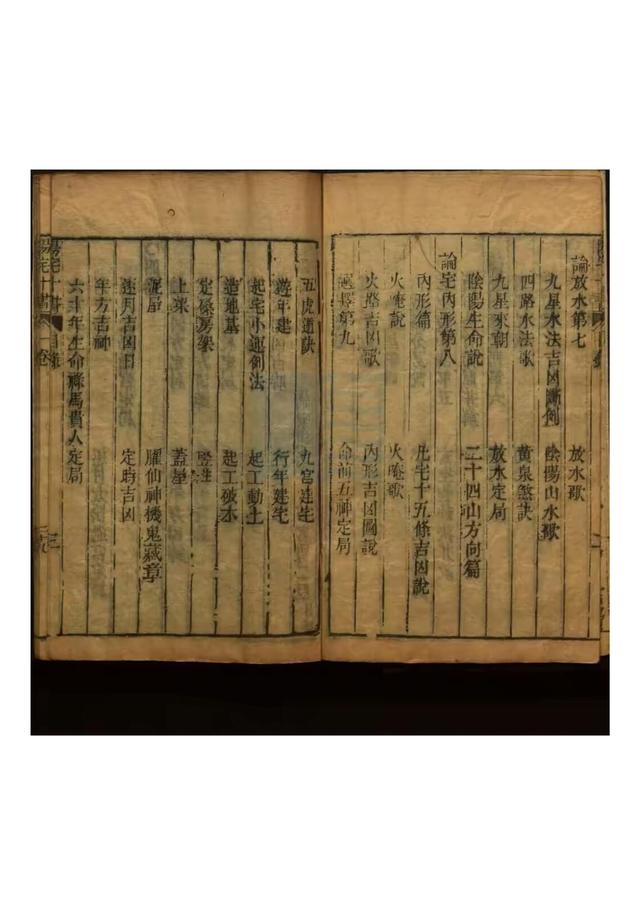 論放水第七　放水歌
九星水法吉凶斷例　陰陽山水歌
四路水法歌　黃泉煞訣
九星來朝　放水定局
陰陽生命說　二十四山方向篇
論宅內形第八
內形篇　凡宅十五條吉凶說
火庵說　火庵歌
火路吉凶歌　內形吉凶圖說
選擇第九　命前五神定局
五虎遁訣　九宮建宅
遊年建　行年建宅
起宅小運例法　起工動土
造地基　起工破木
定磉房架　豎柱
上梁　蓋屋
泥屋　臞仙神機鬼藏章
逐月吉凶日　定時吉凶
年方吉神
六十年生命祿馬貴人定局
陽宅十書　目錄